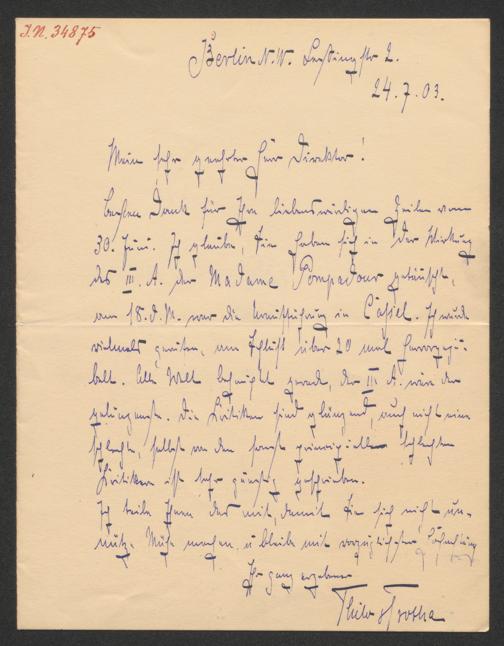 I.N. 34875
Berlin N.W. Lessingstr 2.
24.7.03.
Mein sehr geehrter Herr Direktor!
Besten Dank für Ihre liebenswürdigen Zeilen vom
30. Juni. Ich glaube, Sie haben sich in der Wirkung
des III. A. der Madame Pompadour getäuscht,
am 18. d. M. war die Uraufführung in Cassel. Ich wurde
vielmals gerufen, am Schluß über 20 mal hervorgeju-
belt. Alle Welt behauptet gerade, der III A. wäre der
gelungenste. Die Kritiken sind glänzend, auch nicht eine
schlechte, selbst von den sonst prinzipiell schlechten
Kritiken ist sehr günstig geschrieben.
Ich teile Ihnen das mit, damit Sie sich nicht un-
nütze Mühe machen, u. bleibe mit vorzüglichster Hochachtung
Ihr ganz ergebener
Thilo v Trotha